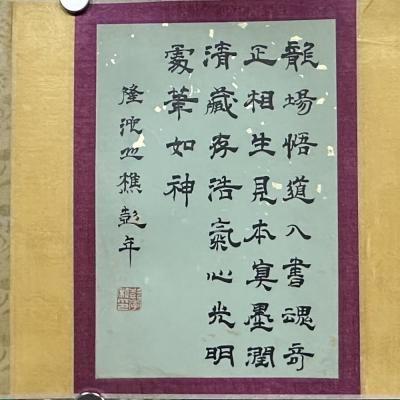 龍場悟道入書魂奇
正相生見本真墨潤
清藏存浩氣心光明
處筆如神
隆池山樵彭年